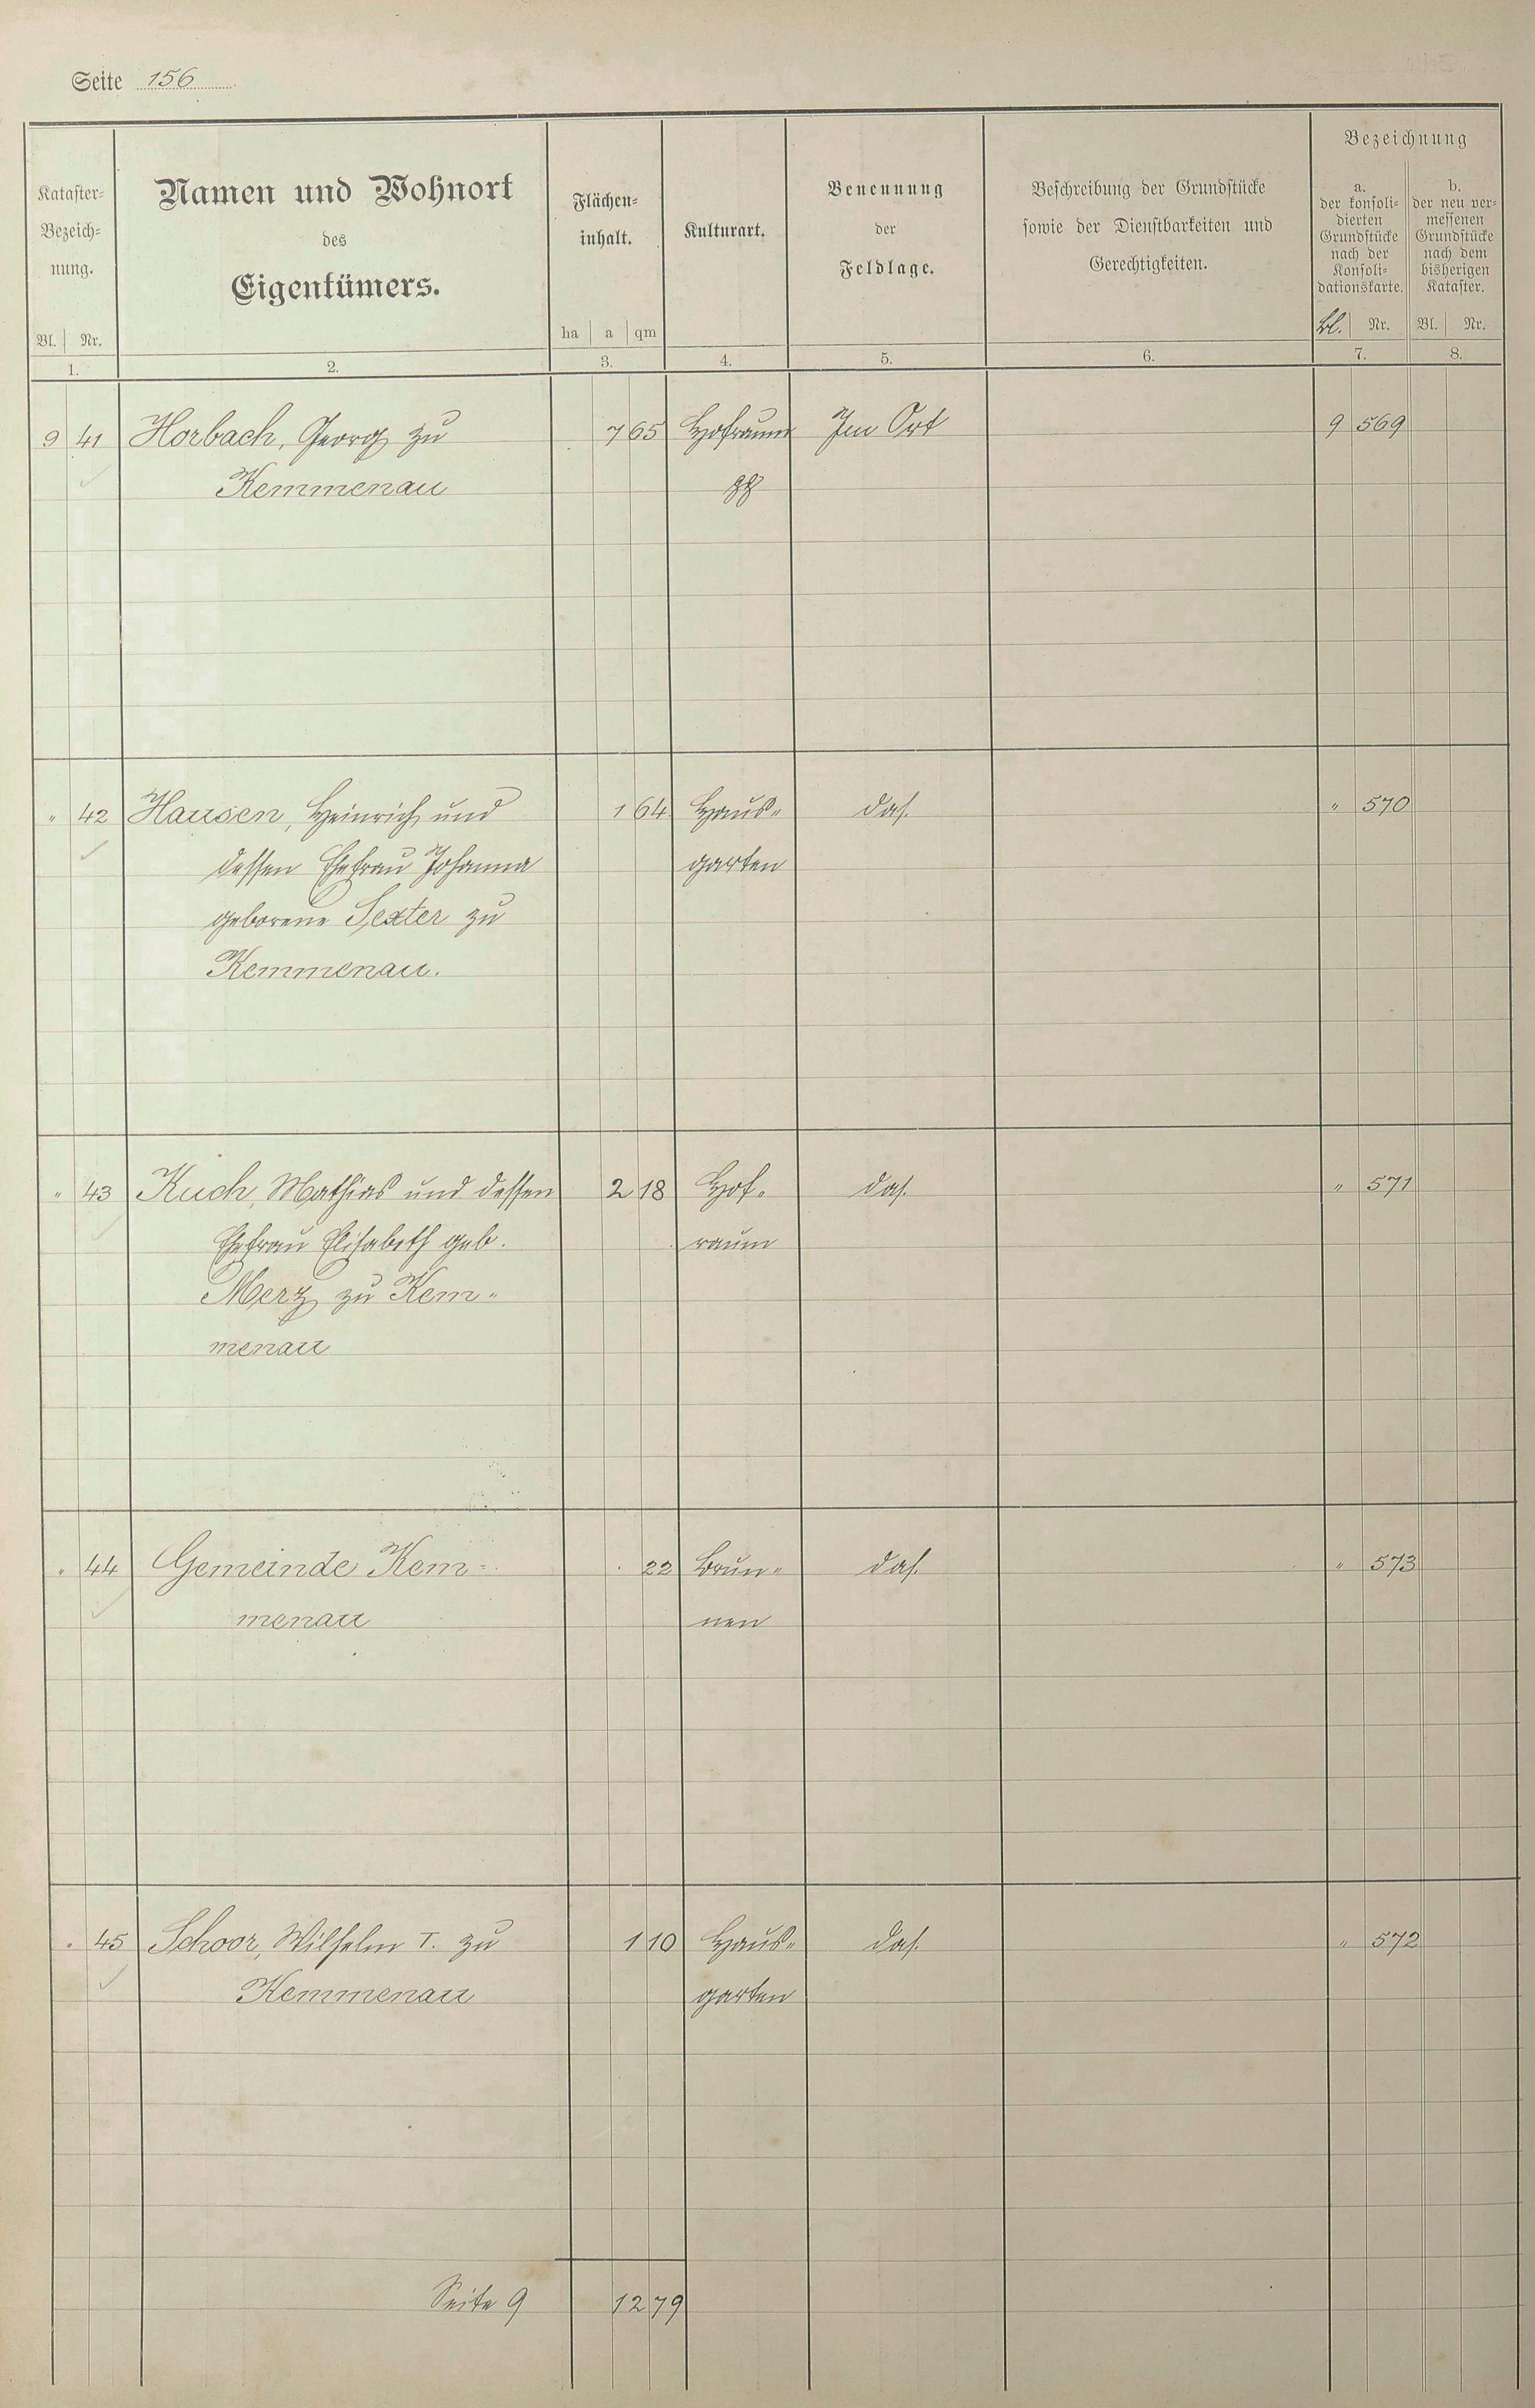 Seite 156
Kataster-
Bezeich-
nung.
Bl. Nr.
1.
Namen und Wohnort
des
Eigentümers.
2.
Flächen-
inhalt.
ha a qm
3.
Kulturart.
4.
Benennung
der
Feldlage.
5.
Beschreibung der Grundstücke
sowie der Dienstbarkeiten und
Gerechtigkeiten.
6.
Bezeichnung
a.
der konsoli-
dierten
Grundstücke
nach der
Konsoli-
dationskarte.
Bl. Nr.
7.
b.
der neu ver-
messenen
Grundstücke
nach dem
bisherigen
Kataster.
Bl. Nr.
8.
9 41 Horbach, Georg zu 7 65 Hofraum Im Ort 9 569
Kemmenau
" 42 Hausen, Heinrich und 1 64 Haus- das. " 570
dessen Ehefrau Johanna garten
geborene Sexter zu
Kemmenau.
" 43 Kuch, Mathias und dessen 2 18 Hof- das. " 571
Ehefrau Elisabeth geb. raum
Merz zu Kem-
menau
" 44 Gemeinde Kem- 22 Brun- das. " 573
menau nen
" 45 Schoor, Wilhelm I. zu 1 10 Haus- das. " 572
Kemmenau garten
Seite 9 12 79